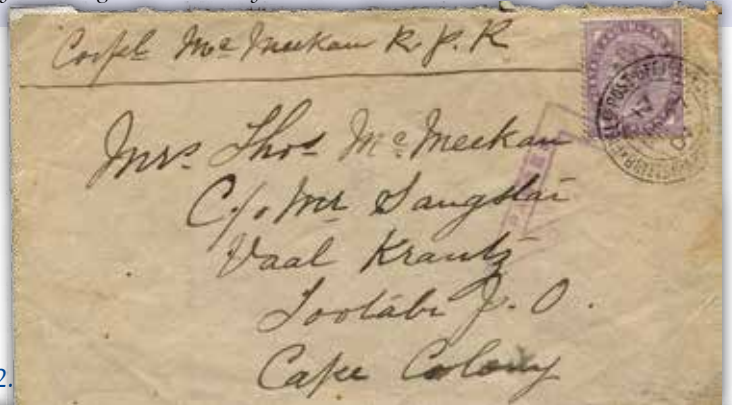 Corpl Mc Meekan R. P. R
Mrs Thos Mc Meekan
C/o Mr Sangstai
Vaal Krantz
Tootabi P. O.
Cape Colony
FIELD POST OFFICE
2.